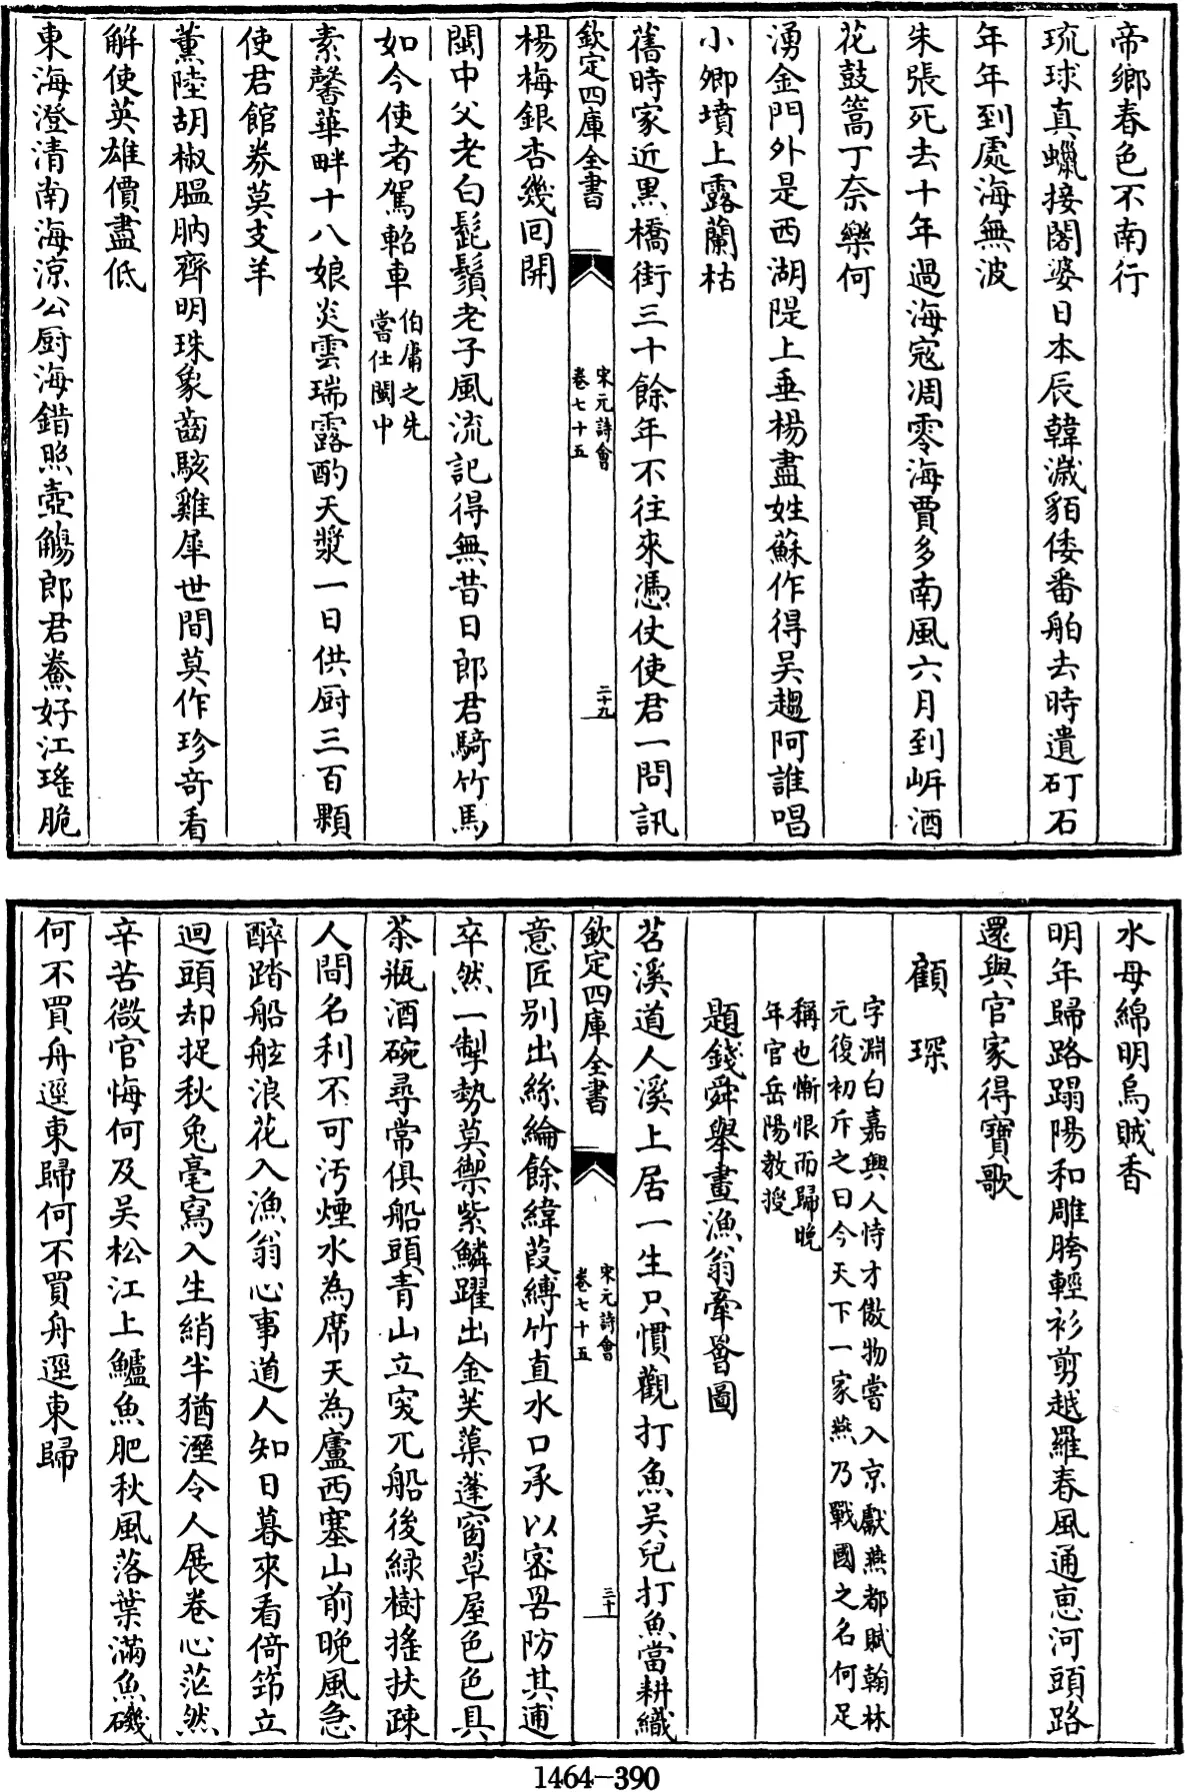 帝鄉春色不南行
琉球真蠟接闍婆日本辰韓濊貊倭番舶去時遺矴石
年年到處海無波
朱張死去十年過海寇凋零海賈多南風六月到岍酒
花鼓篙丁奈樂何
湧金門外是西湖隄上垂楊盡姓蘇作得吴趨阿誰唱
小卿墳上露蘭枯
舊時家近黒橋街三十餘年不往來憑仗使君一問訊
欽定四庫全書
宋元詩會
卷七十五
二十九
楊梅銀杏幾回開
閩中父老白髭鬚老子風流記得無昔日郎君騎竹馬
如今使者駕軺車伯庸之先
嘗仕閩中
素馨華畔十八娘炎雲瑞露酌天漿一日供厨三百顆
使君館券莫支羊
薰陸胡椒膃肭臍明珠象齒駭雞犀世間莫作珍竒看
解使英雄價盡低
東海澄清南海涼公厨海錯照壺觴郎君鮝好江瑤脆
水母綿明烏賊香
明年歸路蹋陽和雕胯輕衫剪越羅春風通恵河頭路
還與官家得寶歌
顧琛
字淵白嘉興人恃才傲物嘗入京獻燕都賦翰林
元復初斥之曰今天下一家燕乃戰國之名何足
稱也慚恨而歸晚
年官岳陽教授
題錢舜舉畫漁翁牽罾圖
苕溪道人溪上居一生只慣觀打魚吴兒打魚當耕織
欽定四庫全書
宋元詩會
卷七十五
三十
意匠别出絲綸餘緯葭縛竹直水口承以密罟防其逋
卒然一掣勢莫禦紫鱗躍出金芙蕖蓬窗草屋色色具
茶瓶酒碗尋常俱船頭青山立突兀船後緑樹搖扶疎
人間名利不可汚煙水為席天為廬西塞山前晚風急
醉踏船舷浪花入漁翁心事道人知日暮來看倚筇立
迴頭却捉秋兔毫寫入生綃半猶溼令人展卷心茫然
辛苦微官悔何及吴松江上鱸魚肥秋風落葉滿魚磯
何不買舟逕東歸何不買舟逕東歸
1464-390